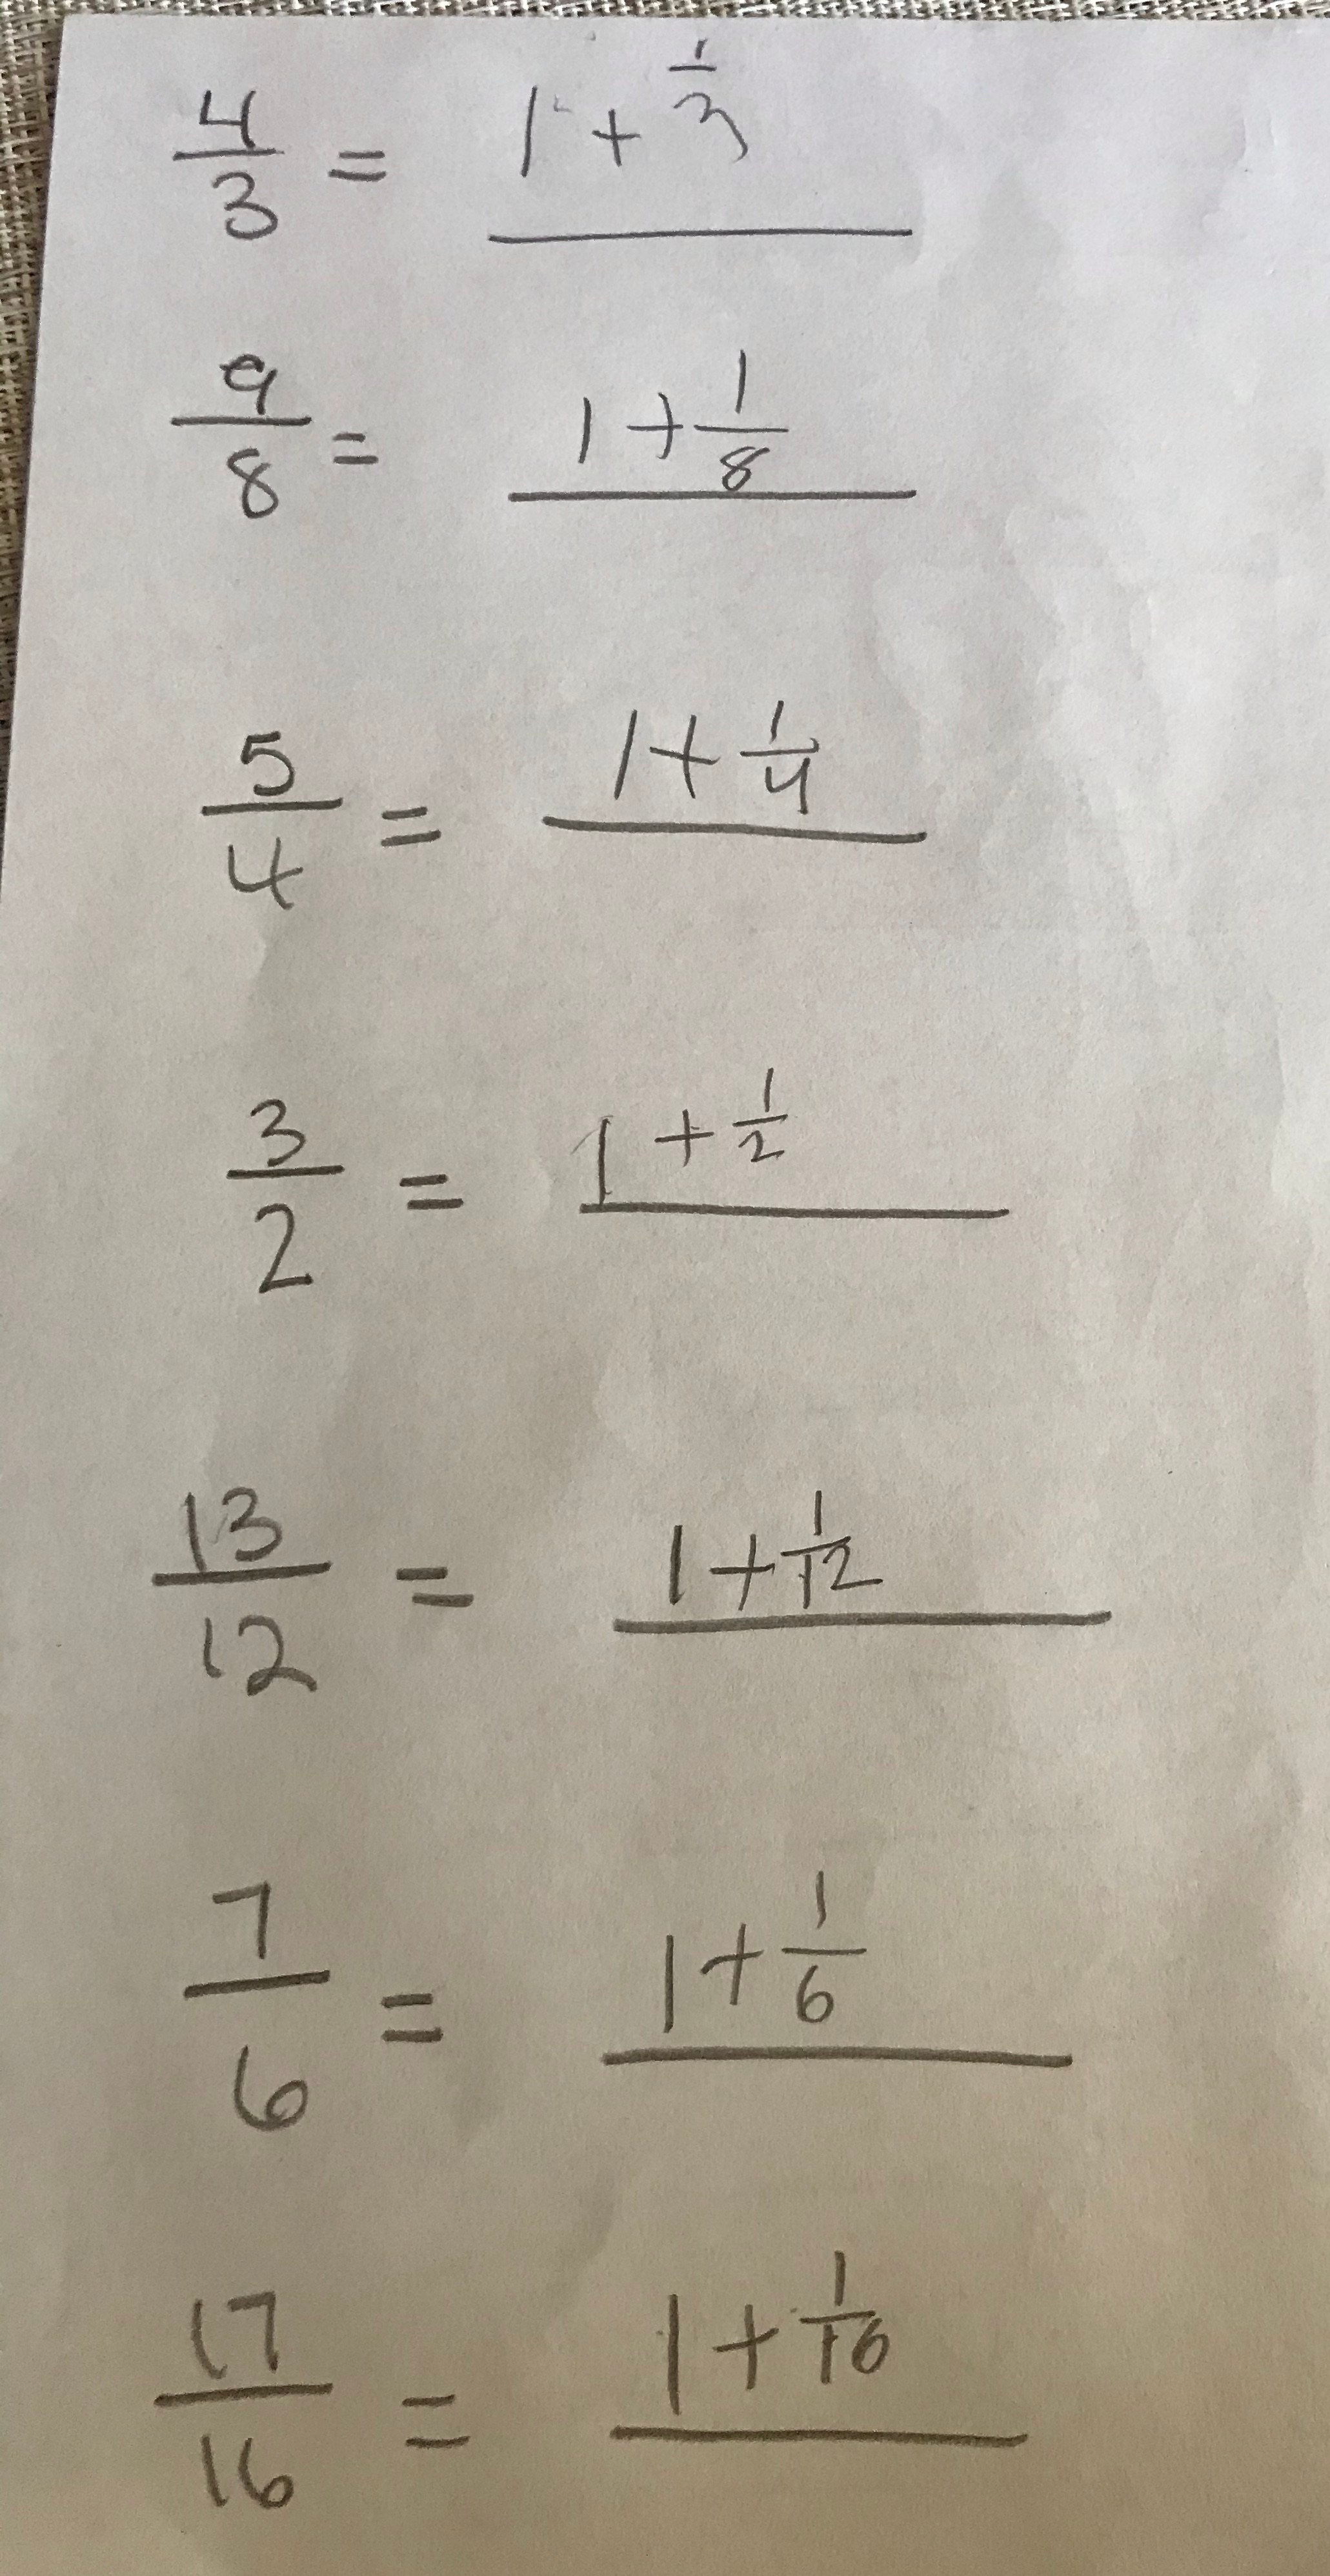 4/3 = 1 + 1/3
9/8 = 1 + 1/8
5/4 = 1 + 1/4
3/2 = 1 + 1/2
13/12 = 1 + 1/12
7/6 = 1 + 1/6
17/16 = 1 + 1/16